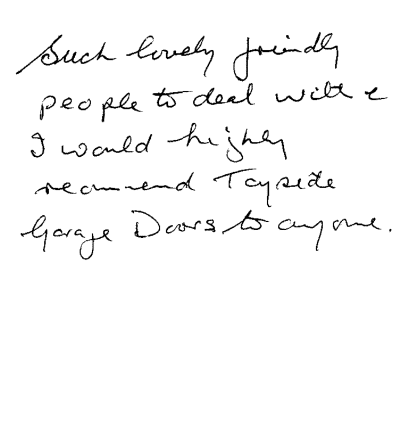 Such lovely friendly
people to deal with &
I would highly
recommend Tayside
Garage Doors to anyone.